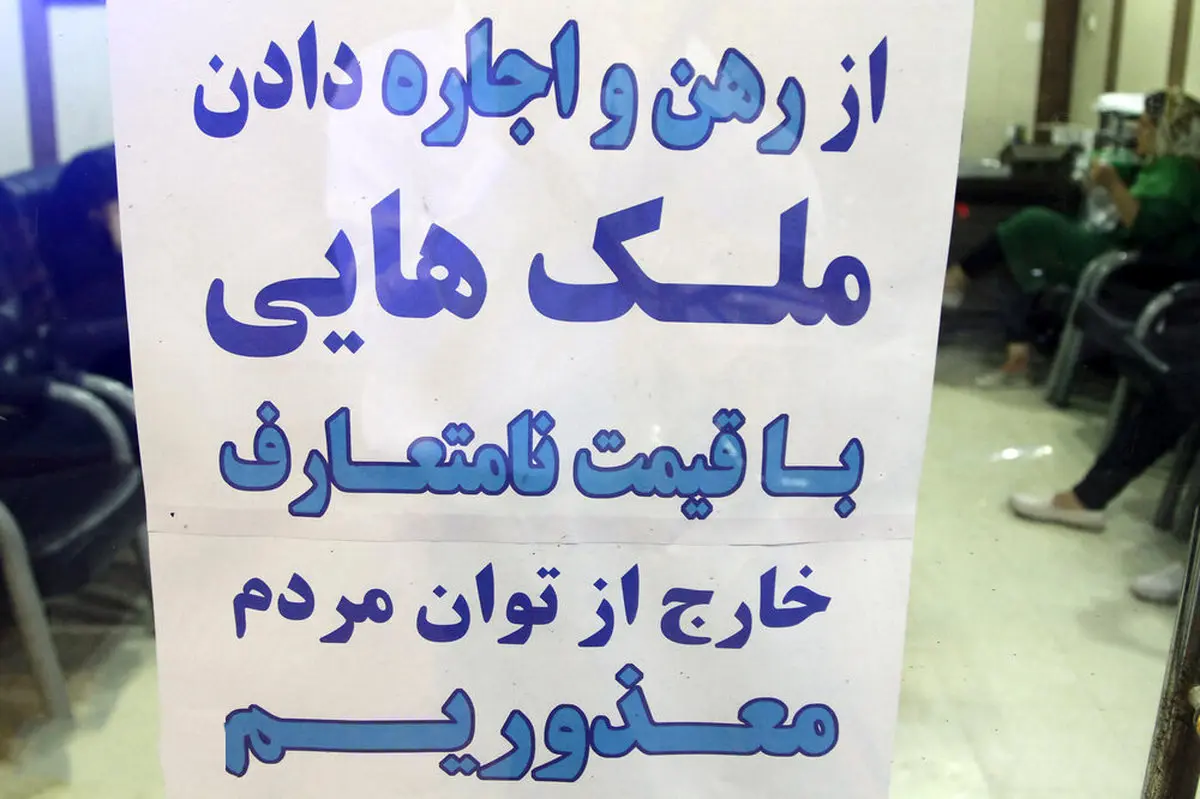 از رهن و اجاره دادن
ملک هایی
با قیمت نامتعارف
خارج از توان مردم
معذوریم